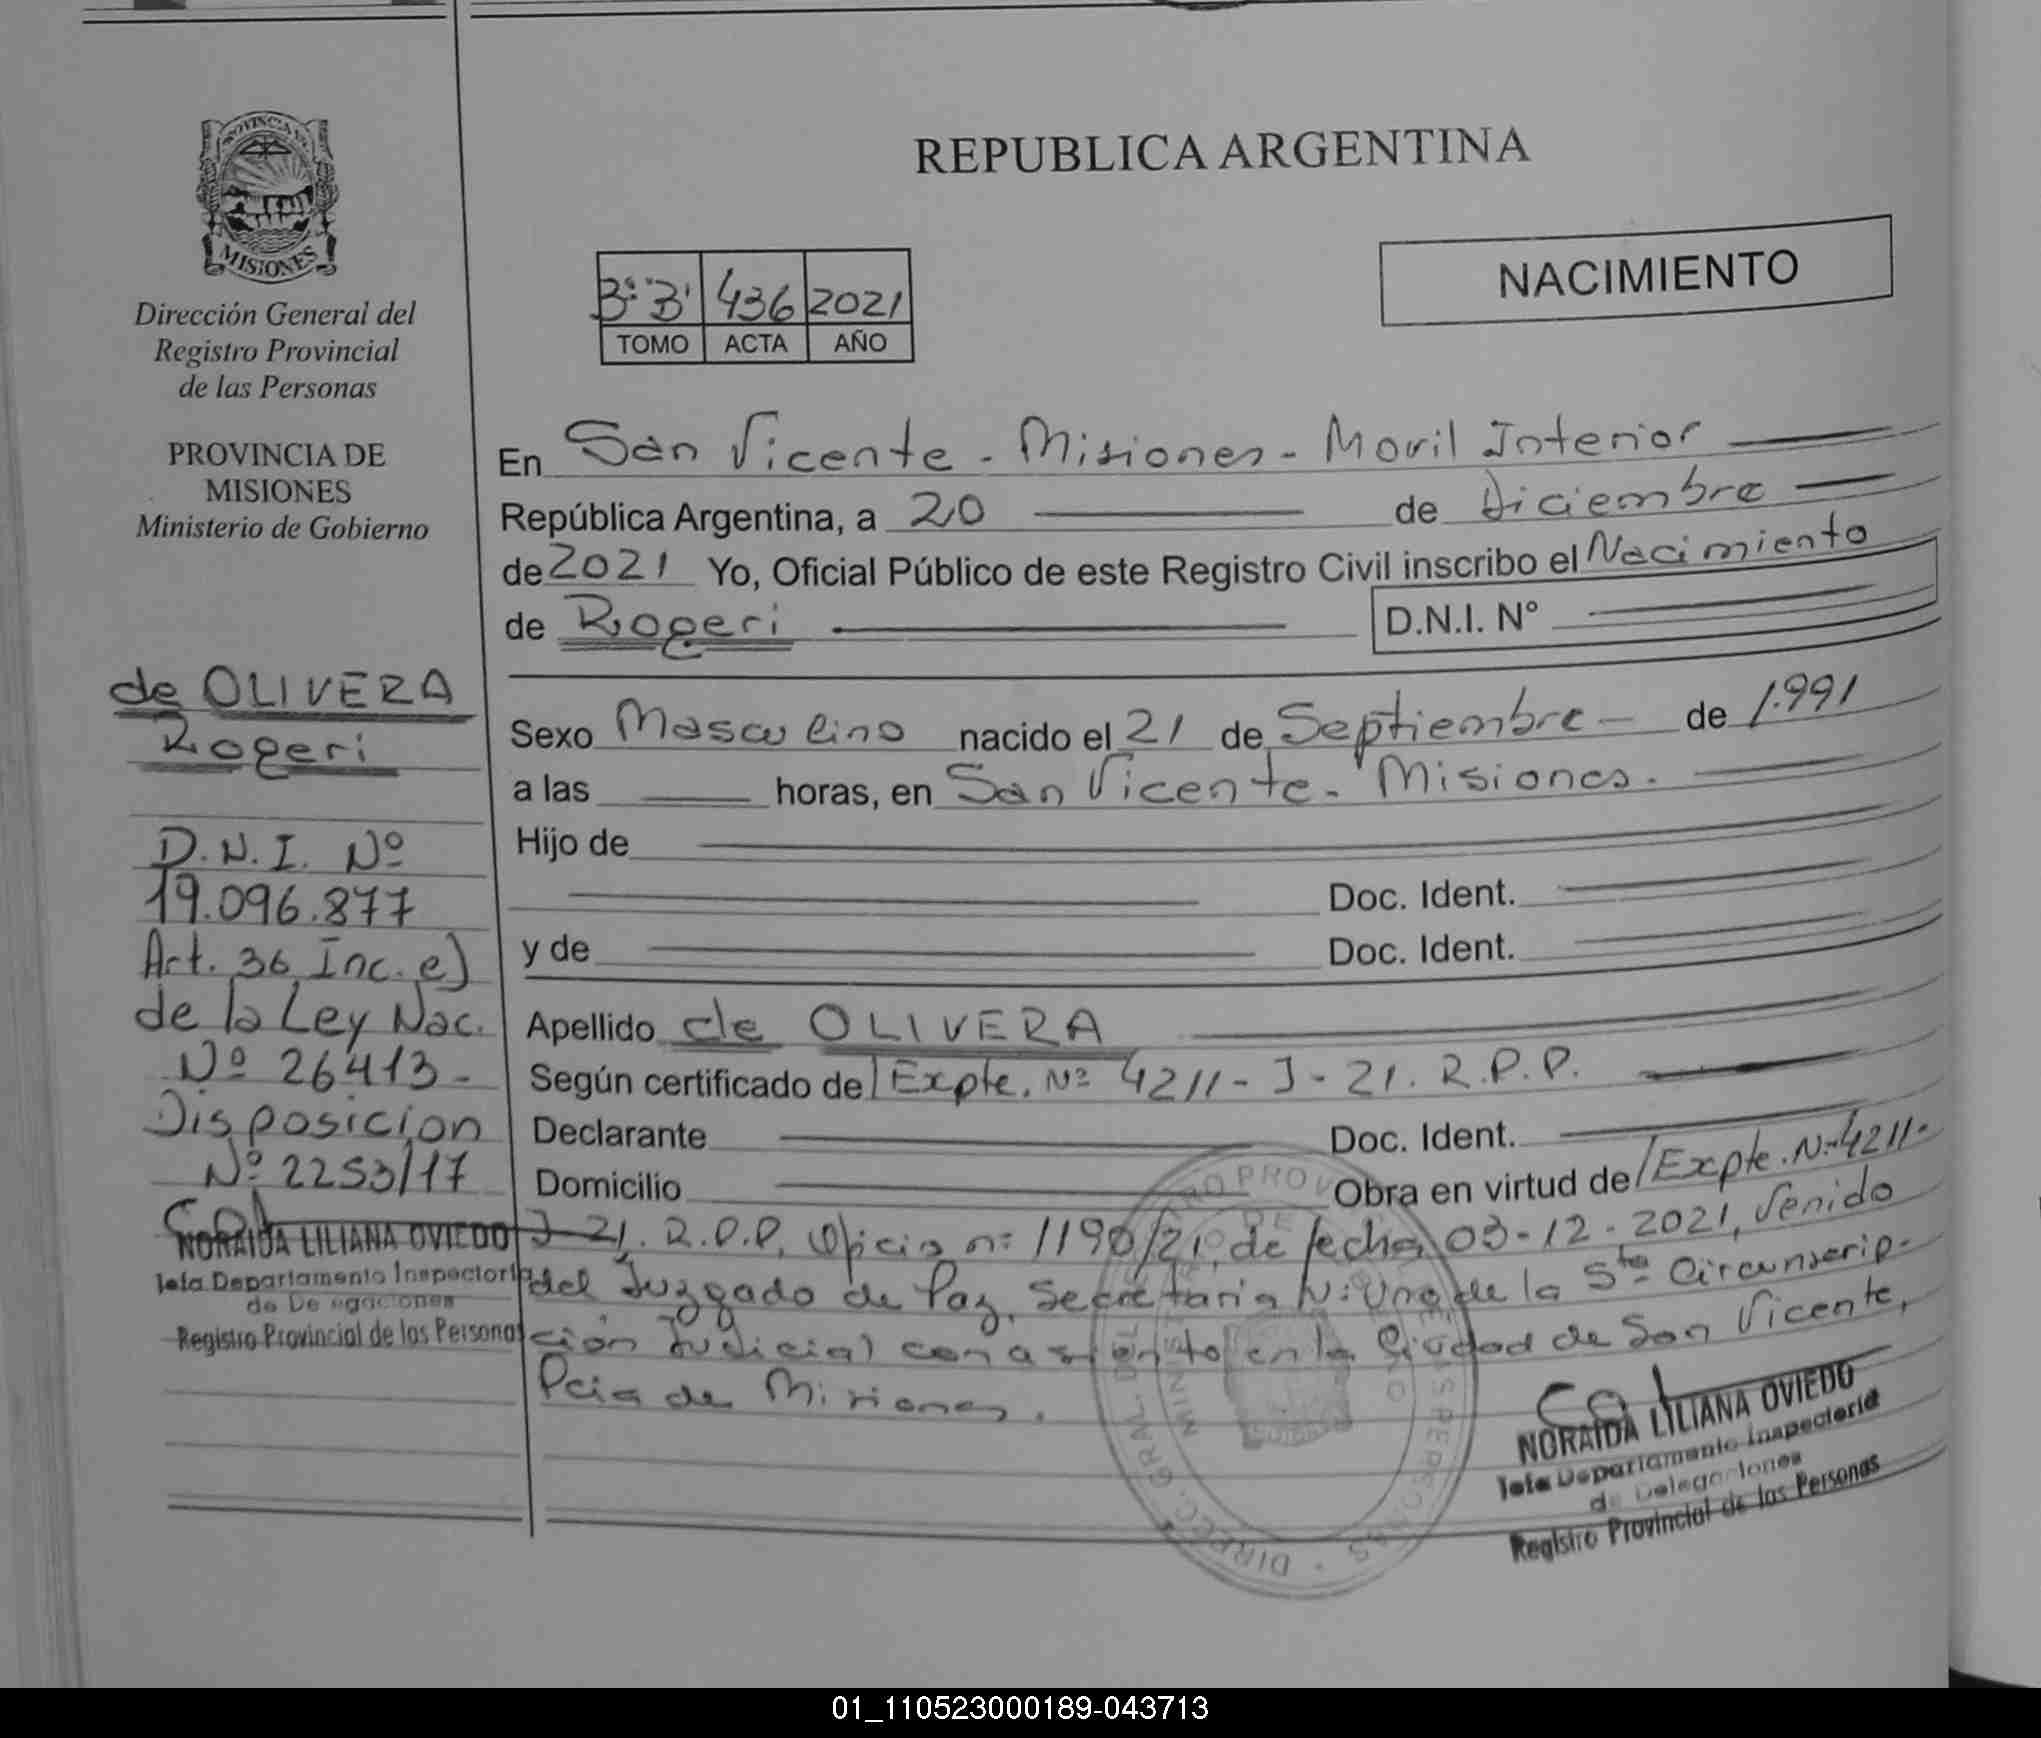 REPUBLICA ARGENTINA
NACIMIENTO
PROVINCIA DE
MISIONES
Dirección General del
Registro Provincial
de las Personas
PROVINCIA DE
MISIONES
Ministerio de Gobierno
436 2021
TOMO ACTA AÑO
En San Vicente - Misiones - Movil Interior
República Argentina, a 20 de Diciembre
de 2021 Yo, Oficial Público de este Registro Civil inscribo el Nacimiento
de Rogeri D.N.I. N°
de OLIVERA
Rogeri
D.N.I. Nº
19.096.877
Art. 36 Inc. e)
de la Ley Nac.
Nº 26413-
Disposicion
Nº 2253/17
NORAIDA LILIANA OVIEDO
Jefa Departamento Inspectoria
de Delegaciones
Registro Provincial de las Personas
Sexo Masculino nacido el 21 de Septiembre - de 1.991
a las horas, en San Vicente - Misiones.
Hijo de
Doc. Ident.
y de Doc. Ident.
Apellido de OLIVERA
Según certificado de Expte. Nº 4211 - J - 21. R.P.P.
Declarante Doc. Ident.
Domicilio Obra en virtud de Expte. Nº 4211-
J-21. R.P.P. Oficio nº 1190/21, de fecha 03-12-2021, Venido
del Juzgado de Paz, Secretaria Nº Uno de la 5ta Circunscrip-
ción Judicial con asiento en la Ciudad de San Vicente,
Pcia de Misiones.
NORAIDA LILIANA OVIEDO
Jefa Departamento Inspectoria
de Delegaciones
Registro Provincial de las Personas
01_110523000189-043713